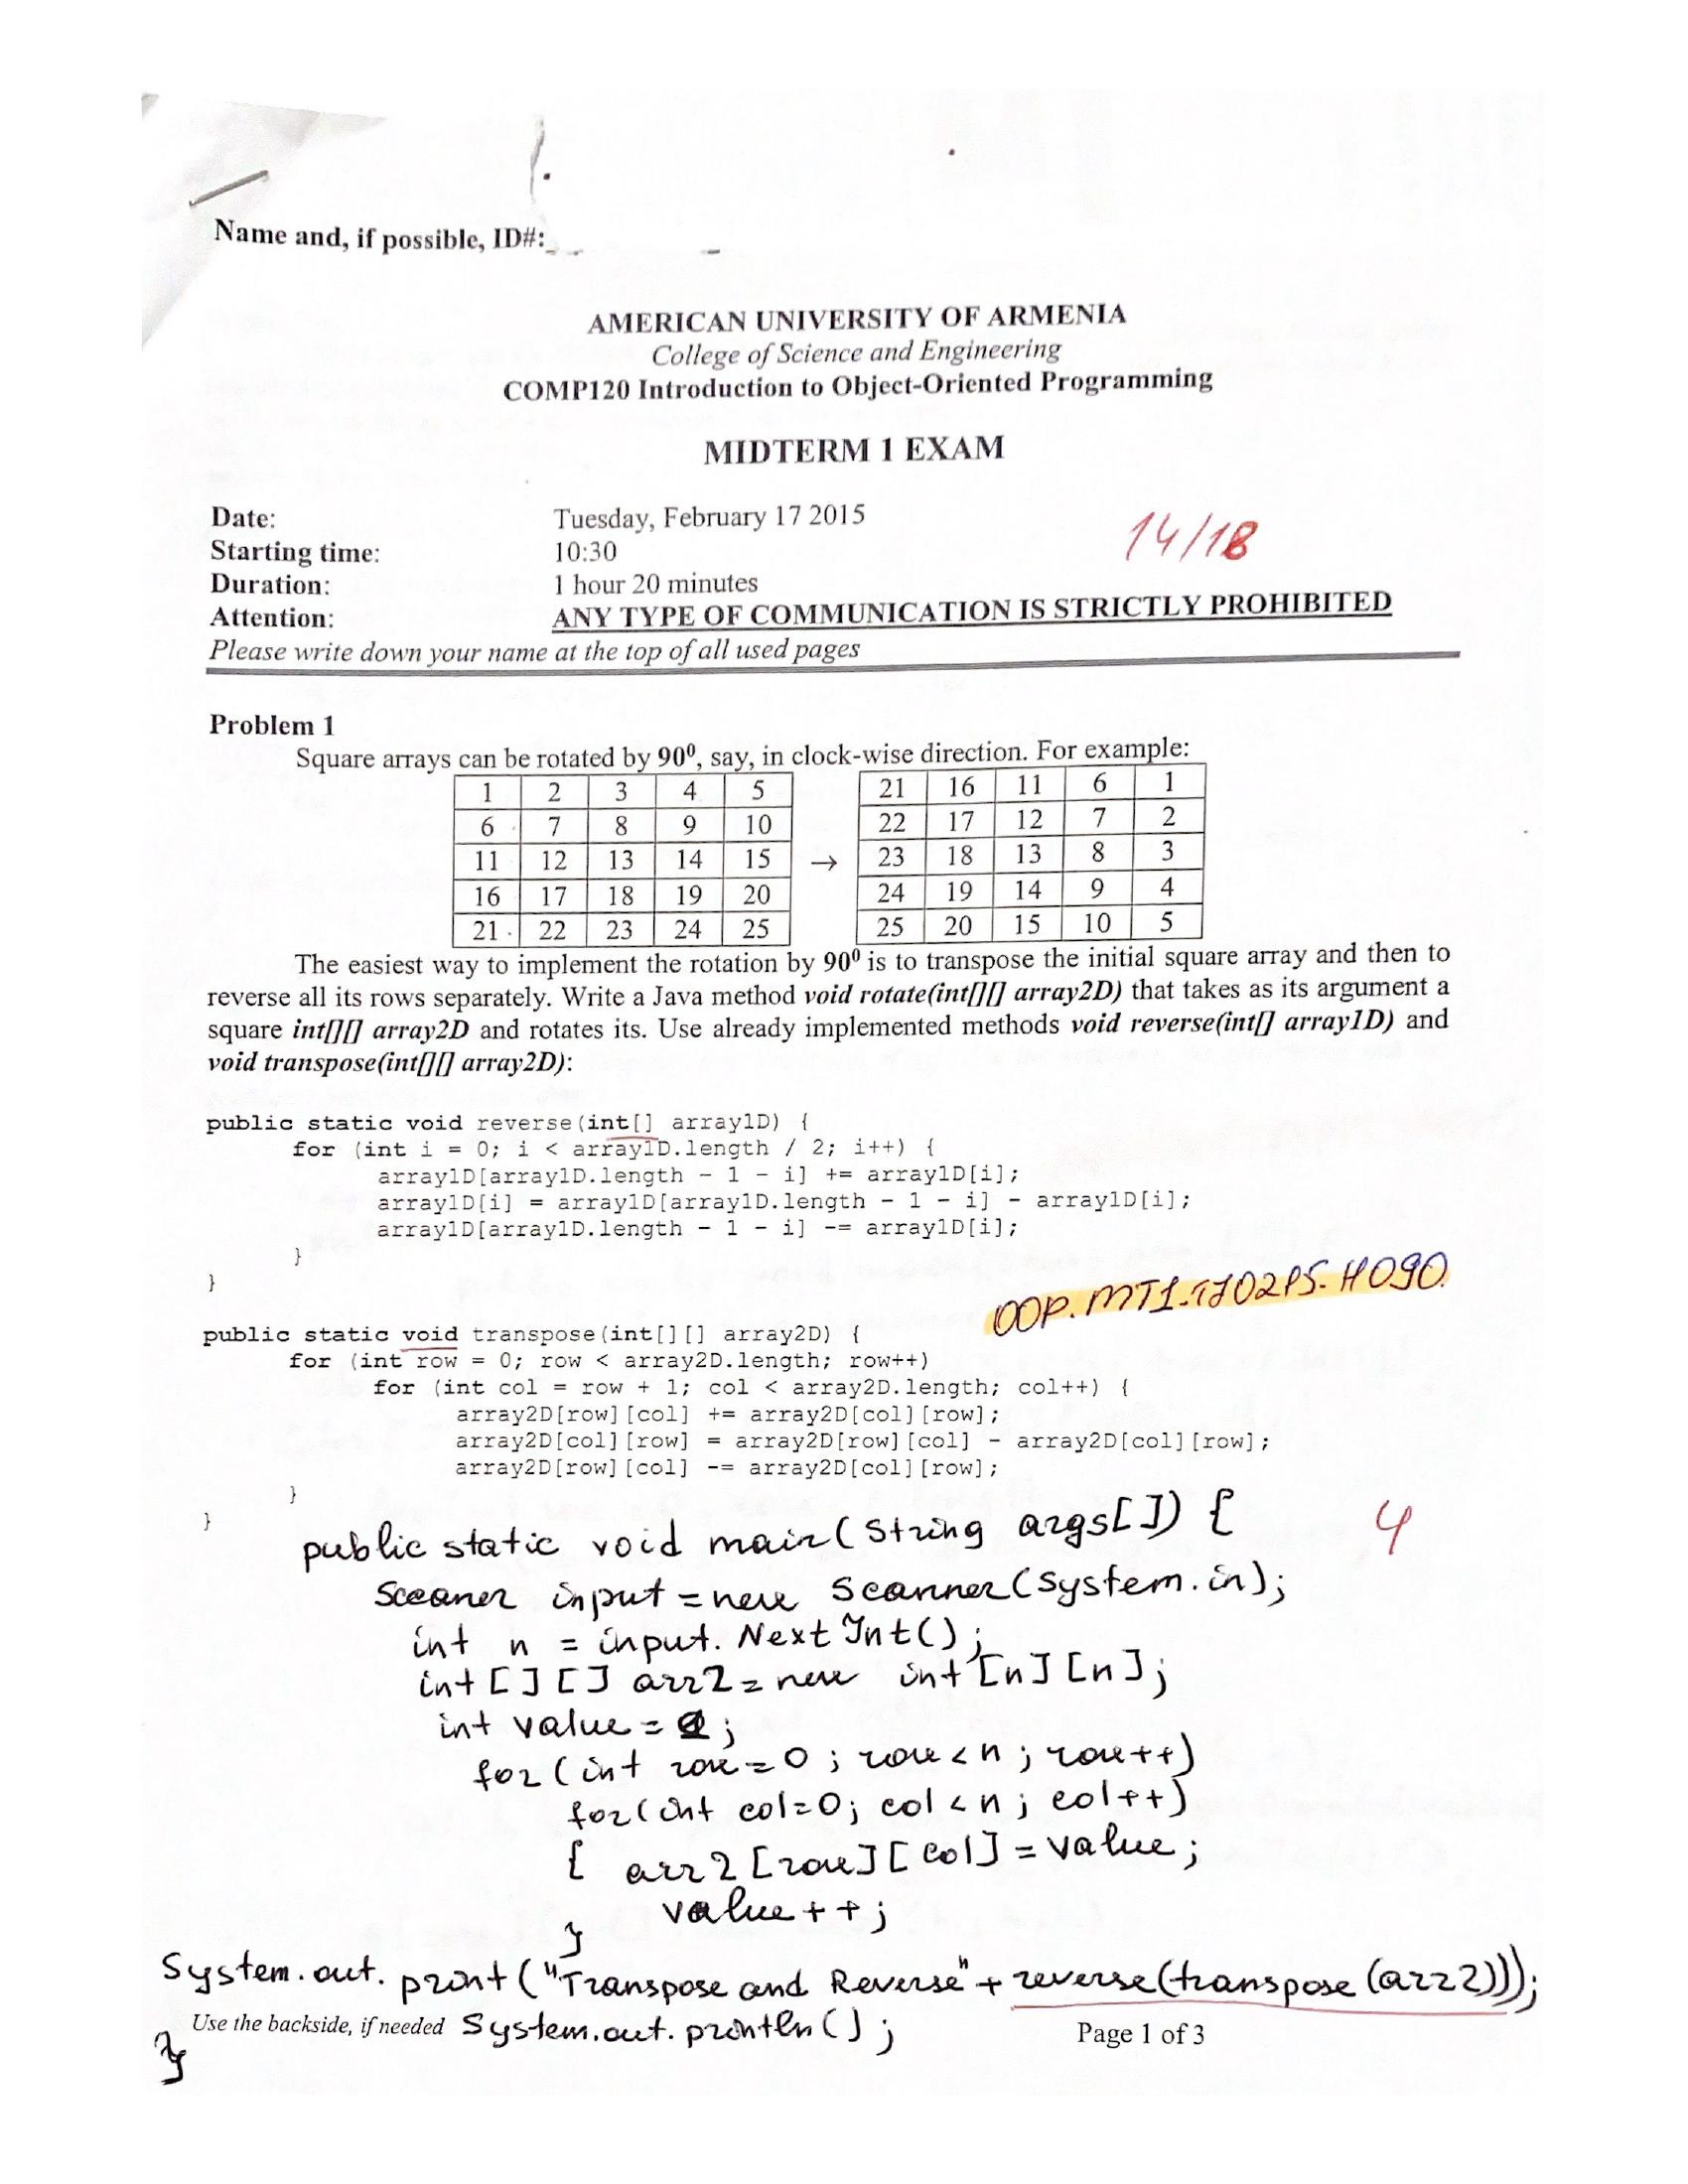 Name and, if possible, ID#:
AMERICAN UNIVERSITY OF ARMENIA
College of Science and Engineering
COMP120 Introduction to Object-Oriented Programming
MIDTERM 1 EXAM
Date: Tuesday, February 17 2015
14/18
Starting time: 10:30
Duration: 1 hour 20 minutes
Attention: ANY TYPE OF COMMUNICATION IS STRICTLY PROHIBITED
Please write down your name at the top of all used pages
Problem 1
Square arrays can be rotated by 90⁰, say, in clock-wise direction. For example:
1 2 3 4 5 21 16 11 6 1
6 7 8 9 10 22 17 12 7 2
11 12 13 14 15 → 23 18 13 8 3
16 17 18 19 20 24 19 14 9 4
21 22 23 24 25 25 20 15 10 5
The easiest way to implement the rotation by 90⁰ is to transpose the initial square array and then to
reverse all its rows separately. Write a Java method void rotate(int[][] array2D) that takes as its argument a
square int[][] array2D and rotates its. Use already implemented methods void reverse(int[] array1D) and
void transpose(int[][] array2D):
public static void reverse(int[] array1D) {
for (int i = 0; i < array1D.length / 2; i++) {
array1D[array1D.length - 1 - i] += array1D[i];
array1D[i] = array1D[array1D.length - 1 - i] - array1D[i];
array1D[array1D.length - 1 - i] -= array1D[i];
}
}
OOP.MT1.170215.H090
public static void transpose(int[][] array2D) {
for (int row = 0; row < array2D.length; row++)
for (int col = row + 1; col < array2D.length; col++) {
array2D[row][col] += array2D[col][row];
array2D[col][row] = array2D[row][col] - array2D[col][row];
array2D[row][col] -= array2D[col][row];
}
}
public static void main(String args[]) {
4
Sceaner input = new Scanner(System.in);
int n = input.NextInt();
int[][] arr2 = new int[n][n];
int value = 1;
for(int row=0; row<n; row++)
for(int col=0; col<n; col++)
{ arr2[row][col] = value;
value++;
}
System.out.print("Transpose and Reverse" + reverse(transpose(arr2)));
Use the backside, if needed System.out.println();
Page 1 of 3
}